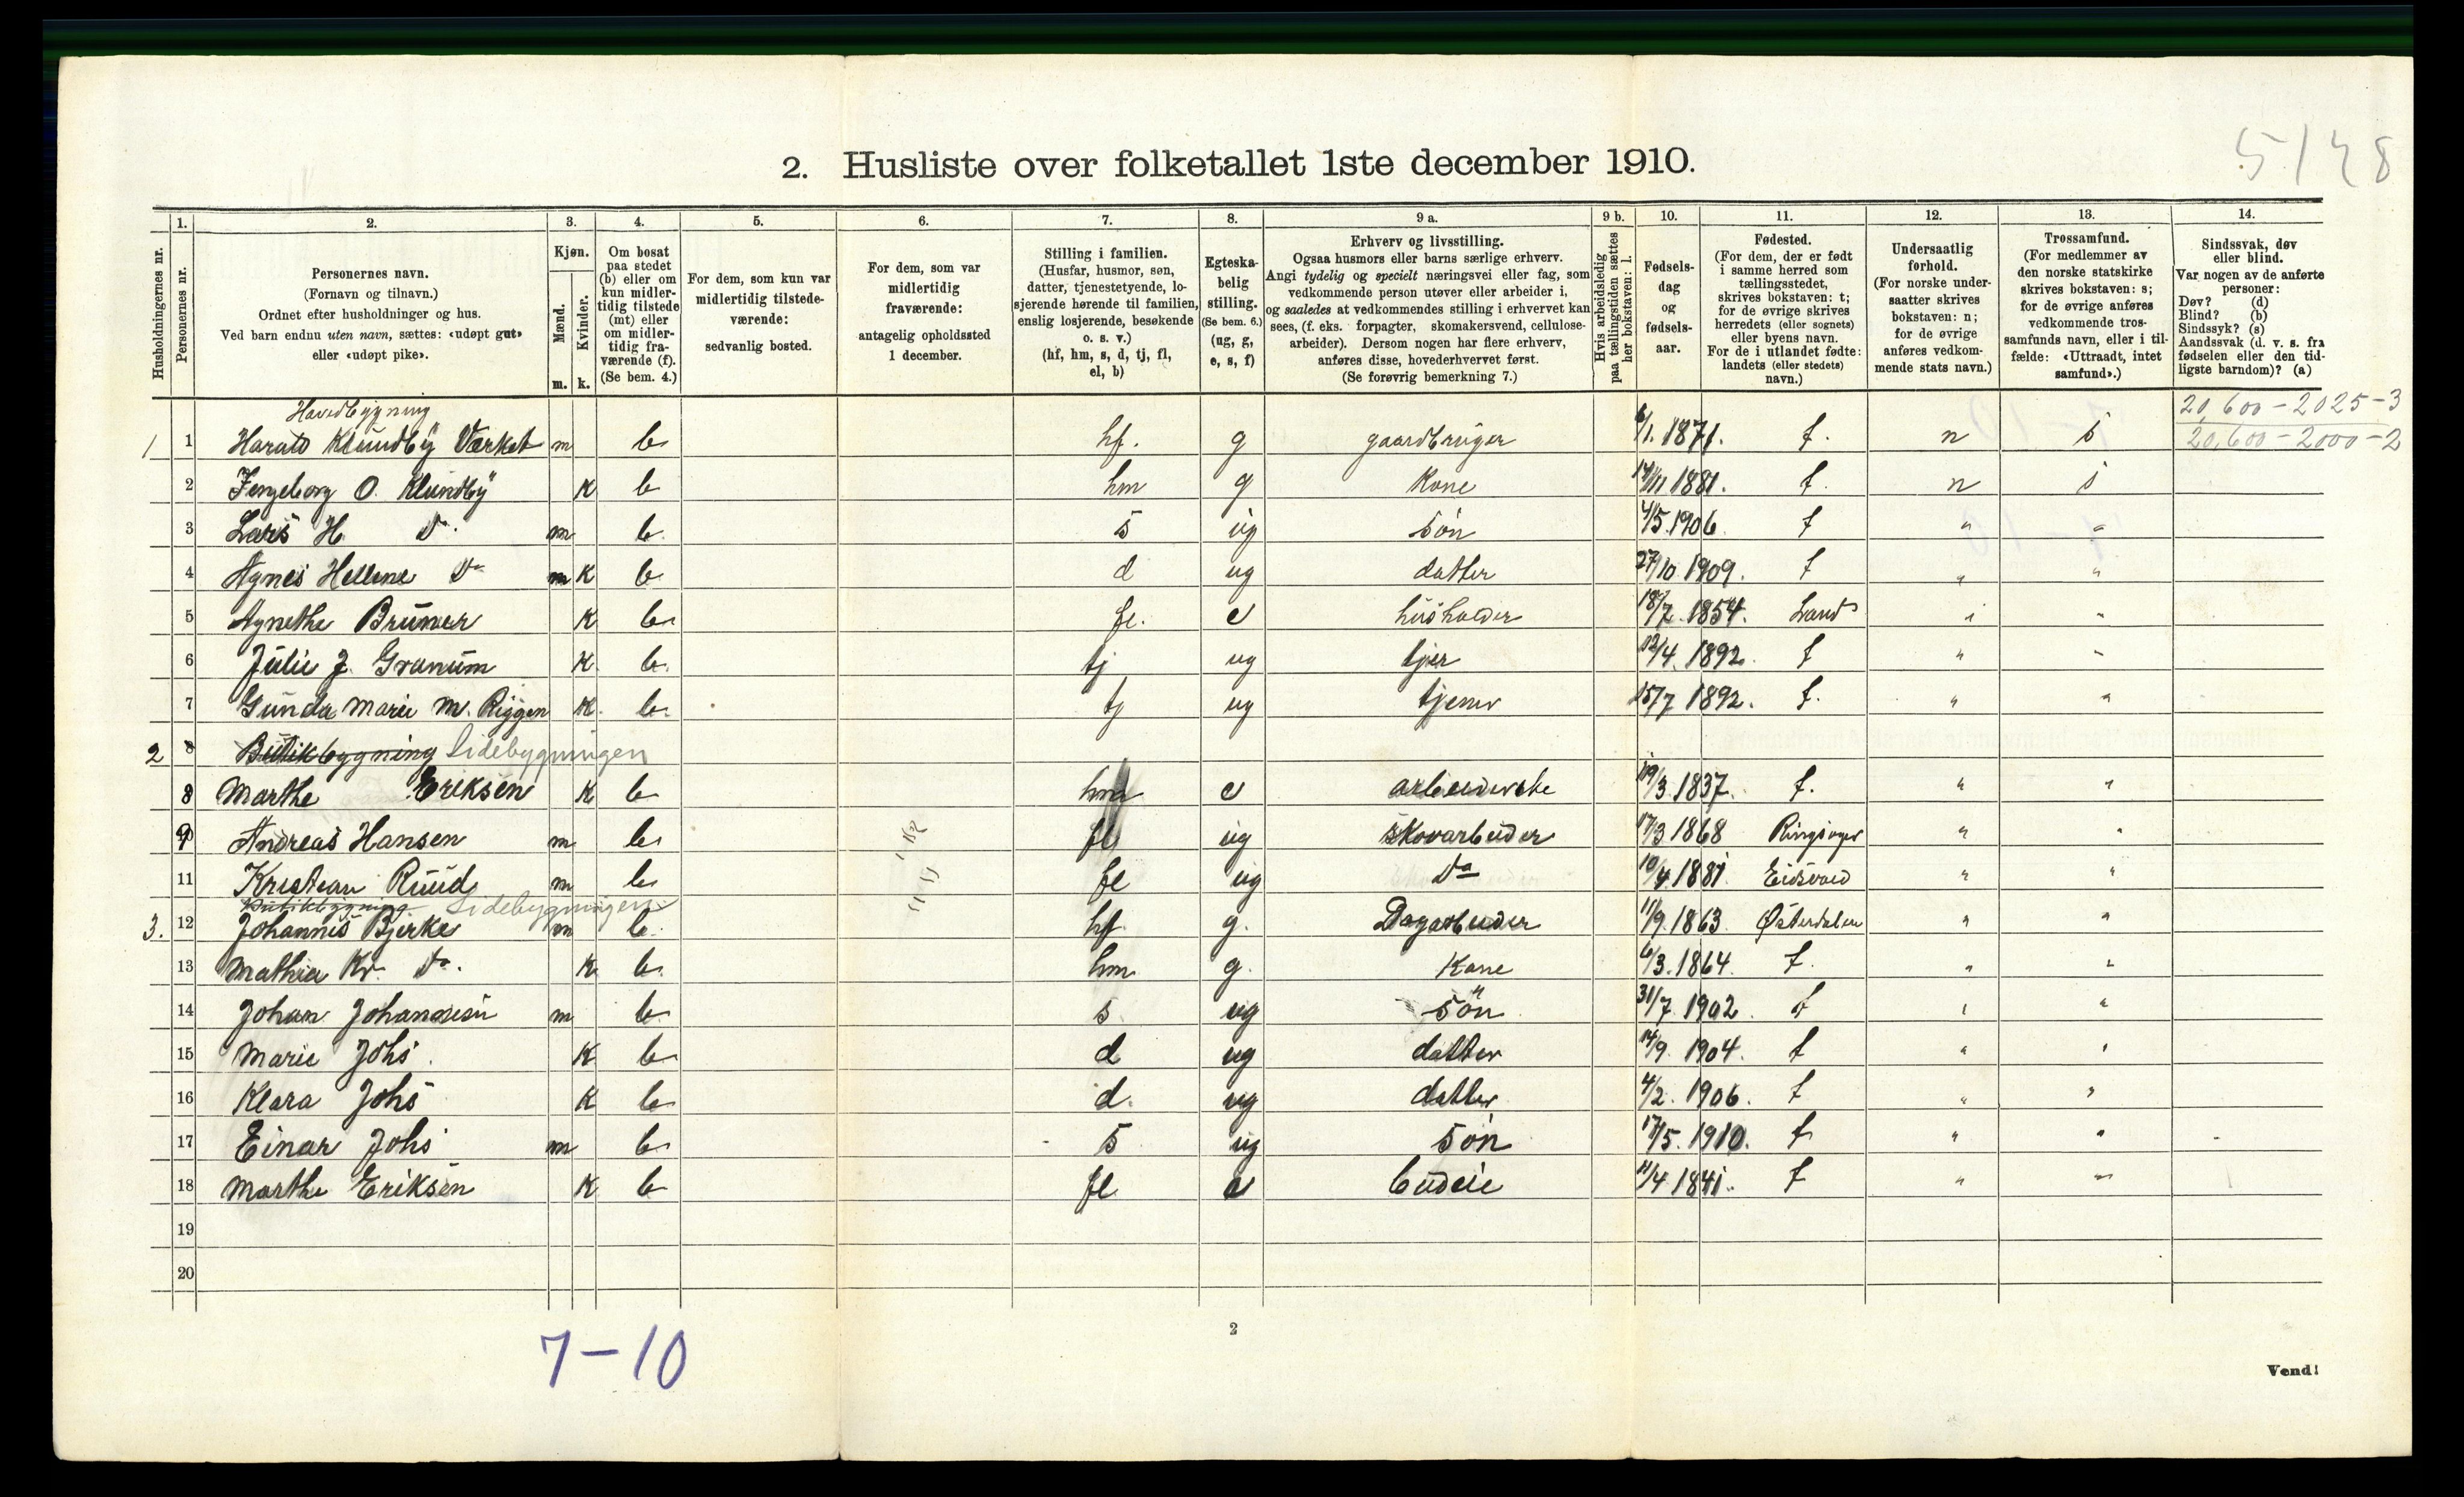 5/28
2. Husliste over folketallet 1ste december 1910.
Husholdningernes nr.
1. Personernes nr.
2. Personernes navn. (Fornavn og tilnavn.) Ordnet efter husholdninger og hus. Ved barn endnu uten navn, sættes: «udøpt gut» eller «udøpt pike».
3. Kjøn. Mænd. m. Kvinder. k.
4. Om bosat paa stedet (b) eller om kun midlertidig tilstede (mt) eller om midlertidig fraværende (f). (Se bem. 4.)
5. For dem, som kun var midlertidig tilstedeværende: sedvanlig bosted.
6. For dem, som var midlertidig fraværende: antagelig opholdssted 1 december.
7. Stilling i familien. (Husfar, husmor, søn, datter, tjenestetyende, losjerende hørende til familien, enslig losjerende, besøkende o. s. v.) (hf, hm, s, d, tj, fl, el, b)
8. Egteskabelig stilling. (Se bem. 6.) (ug, g, e, s, f)
9 a. Erhverv og livsstilling. Ogsaa husmors eller barns særlige erhverv. Angi tydelig og specielt næringsvei eller fag, som vedkommende person utøver eller arbeider i, og saaledes at vedkommendes stilling i erhvervet kan sees, (f. eks. forpagter, skomakersvend, cellulosearbeider). Dersom nogen har flere erhverv, anføres disse, hovederhvervet først. (Se forøvrig bemerkning 7.)
9 b. Hvis arbeidsledig paa tællingstiden sættes her bokstaven: l.
10. Fødselsdag og fødselsaar.
11. Fødested. (For dem, der er født i samme herred som tællingsstedet, skrives bokstaven: t; for de øvrige skrives herredets (eller sognets) eller byens navn. For de i utlandet fødte: landets (eller stedets) navn.)
12. Undersaatlig forhold. (For norske undersaatter skrives bokstaven: n; for de øvrige anføres vedkommende stats navn.)
13. Trossamfund. (For medlemmer av den norske statskirke skrives bokstaven: s; for de øvrige anføres vedkommende trossamfunds navn, eller i tilfælde: «Uttraadt, intet samfund».)
14. Sindssvak, døv eller blind. Var nogen av de anførte personer: Døv? (d) Blind? (b) Sindssyk? (s) Aandssvak (d. v. s. fra fødselen eller den tidligste barndom)? (a)
20,600 - 2025 - 3
Hovedbygning
1 1 Harald Klundby Værket m b hf. g gaardbruger 6/1. 1871. t. n s 20,600 - 2000 - 2
2 Ingeborg O. Klundby K b hm g Kone 14/11 1881. t. n s
3 Lars H. Do. m b. s ug søn 4/5. 1906. t " "
4 Agnes Hellene Do m K b d ug datter 27/10. 1909. t " "
5 Agnethe Bruner K b fl. e husholder 18/7. 1854. Land " "
6 Julie J. Granum K. b. tj ug tjer 12/4. 1892. t " "
7 Gunda Marie M. Riggen K. b. tj ug tjener 15/7 1892. t. " "
2 8 Butikbygning Sidebygningen
8 Marthe Eriksen K b hm e arbeiderske 19/3. 1837. t. " "
9 Andreas Hansen m b fl ug skovarbeider 17/3 1868 Ringsager " "
11 Kristian Ruud m b fl ug Do 10/4. 1881 Eidsvold " "
Butikbygning Sidebygningen
3. 12 Johannes Bjerke m b. hf. g. Dagarbeider 11/9. 1863 Østerdalen " "
13 Mathia Kr. Do. K b. hm g. Kone 6/3. 1864. t. " "
14 Johan Johannesen m b. s ug søn 31/7. 1902. t " "
15 Marie Johs. K b d ug datter 14/9. 1904. t " "
16 Klara Johs K b d. ug datter 4/2. 1906. t " "
17 Einar Johs m b s ug søn 17/5. 1910. t " "
18 Marthe Eriksen K b fl e budeie 11/4. 1841. t " "
19
20
7-10
2
Vend!